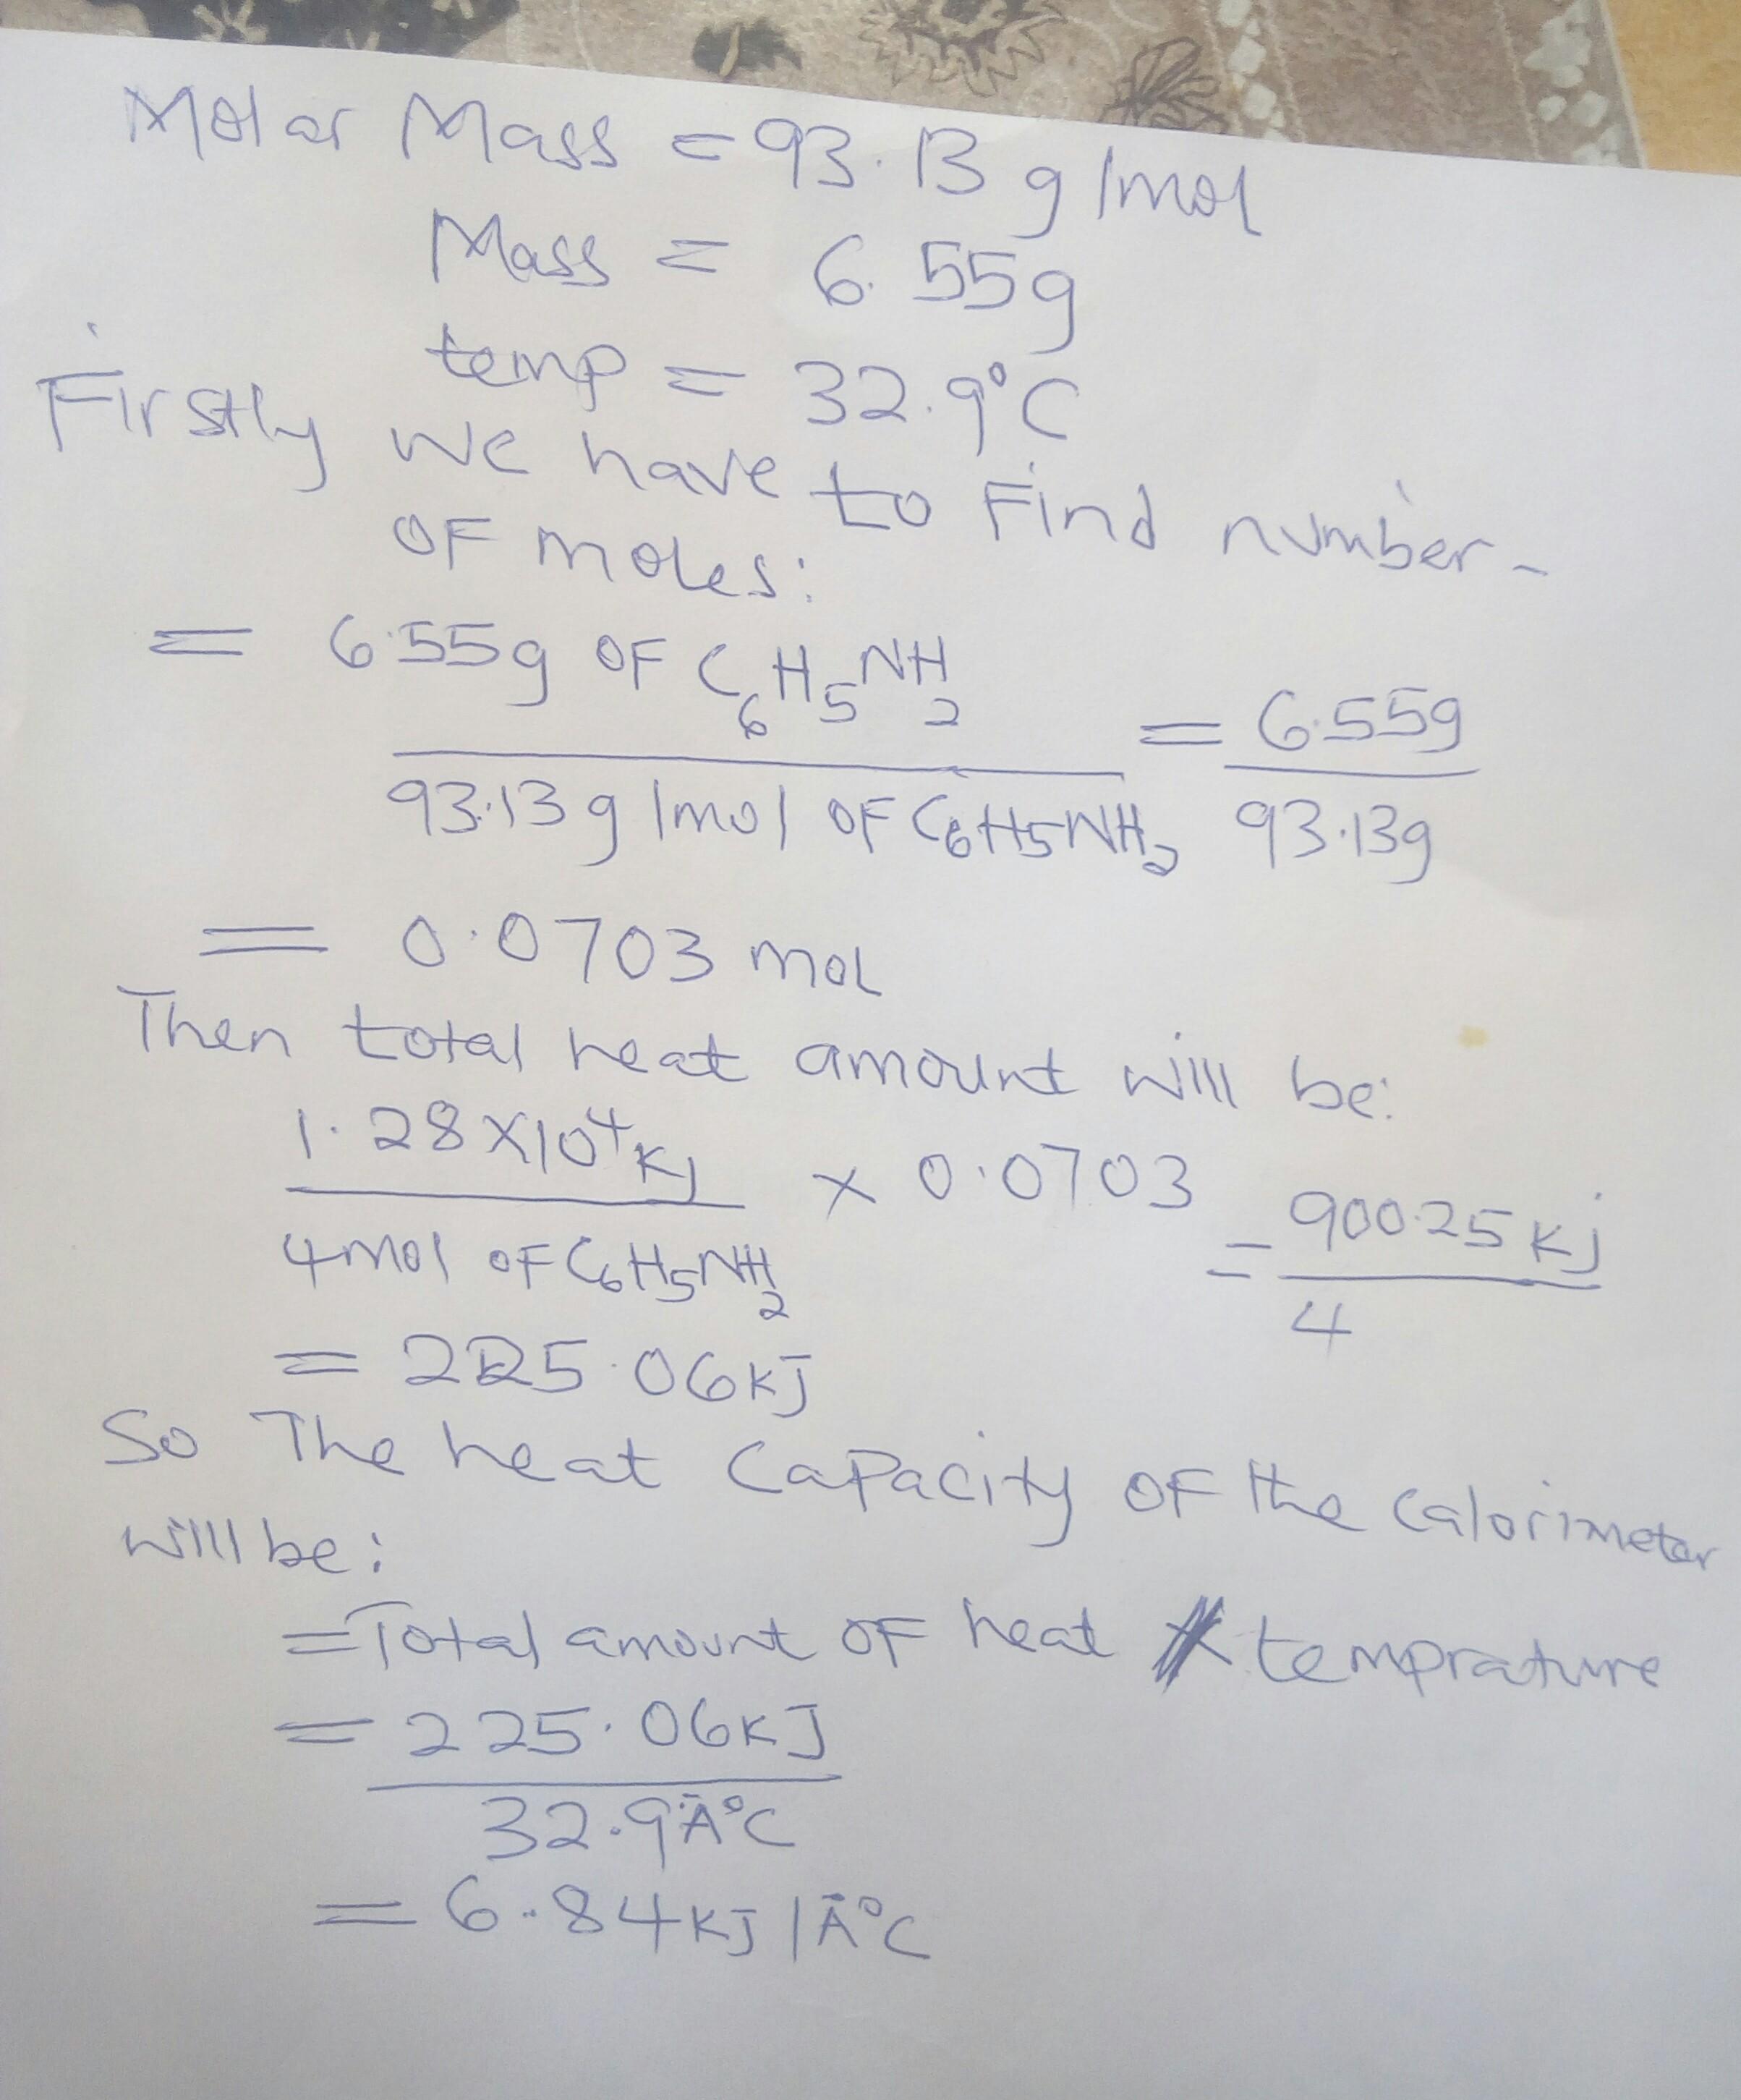 Molar Mass = 93.13 g/mol
Mass = 6.55g
temp = 32.9°C
Firstly we have to Find number-
OF moles:
= 6.55g OF C6H5NH2 / 93.13g/mol OF C6H5NH2 = 6.55g / 93.13g
= 0.0703 mol
Then total heat amount will be:
1.28×10⁴KJ / 4mol OF C6H5NH2 × 0.0703 = 900.25KJ / 4
= 225.06KJ
So The heat Capacity OF the calorimeter
will be:
= Total amount OF heat temprature
= 225.06KJ
32.9Â°C
= 6.84KJ/Â°C